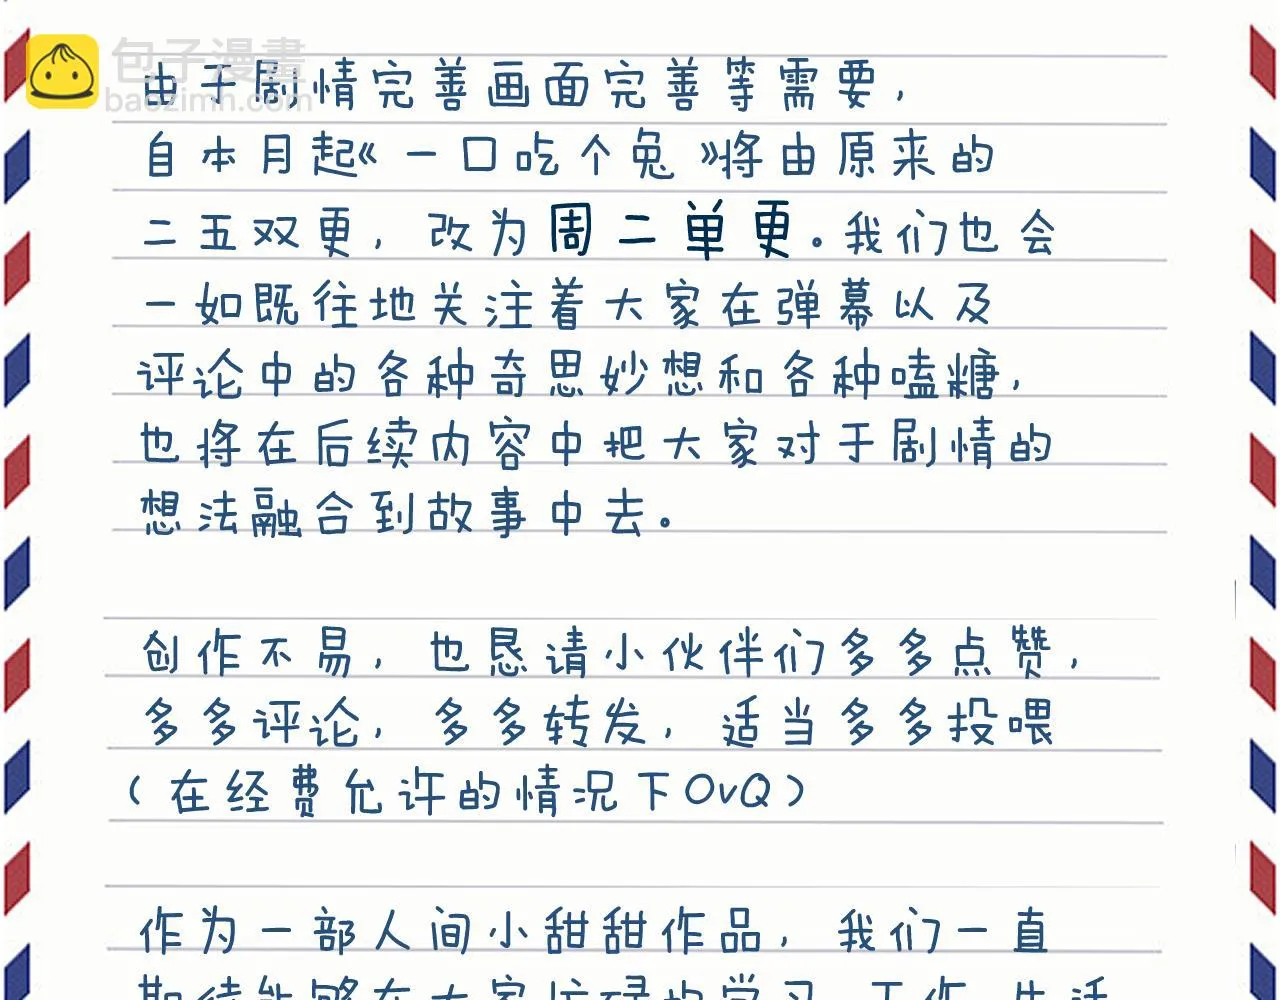 包子漫畫
baozimh.com
由于剧情完善画面完善等需要,
自本月起《一口吃个兔》将由原来的
二五双更,改为周二单更。我们也会
一如既往地关注着大家在弹幕以及
评论中的各种奇思妙想和各种嗑糖,
也将在后续内容中把大家对于剧情的
想法融合到故事中去。
创作不易,也恳请小伙伴们多多点赞,
多多评论,多多转发,适当多多投喂
(在经费允许的情况下OvQ)
作为一部人间小甜甜作品,我们一直
期待能够在大家忙碌的学习、工作、生活